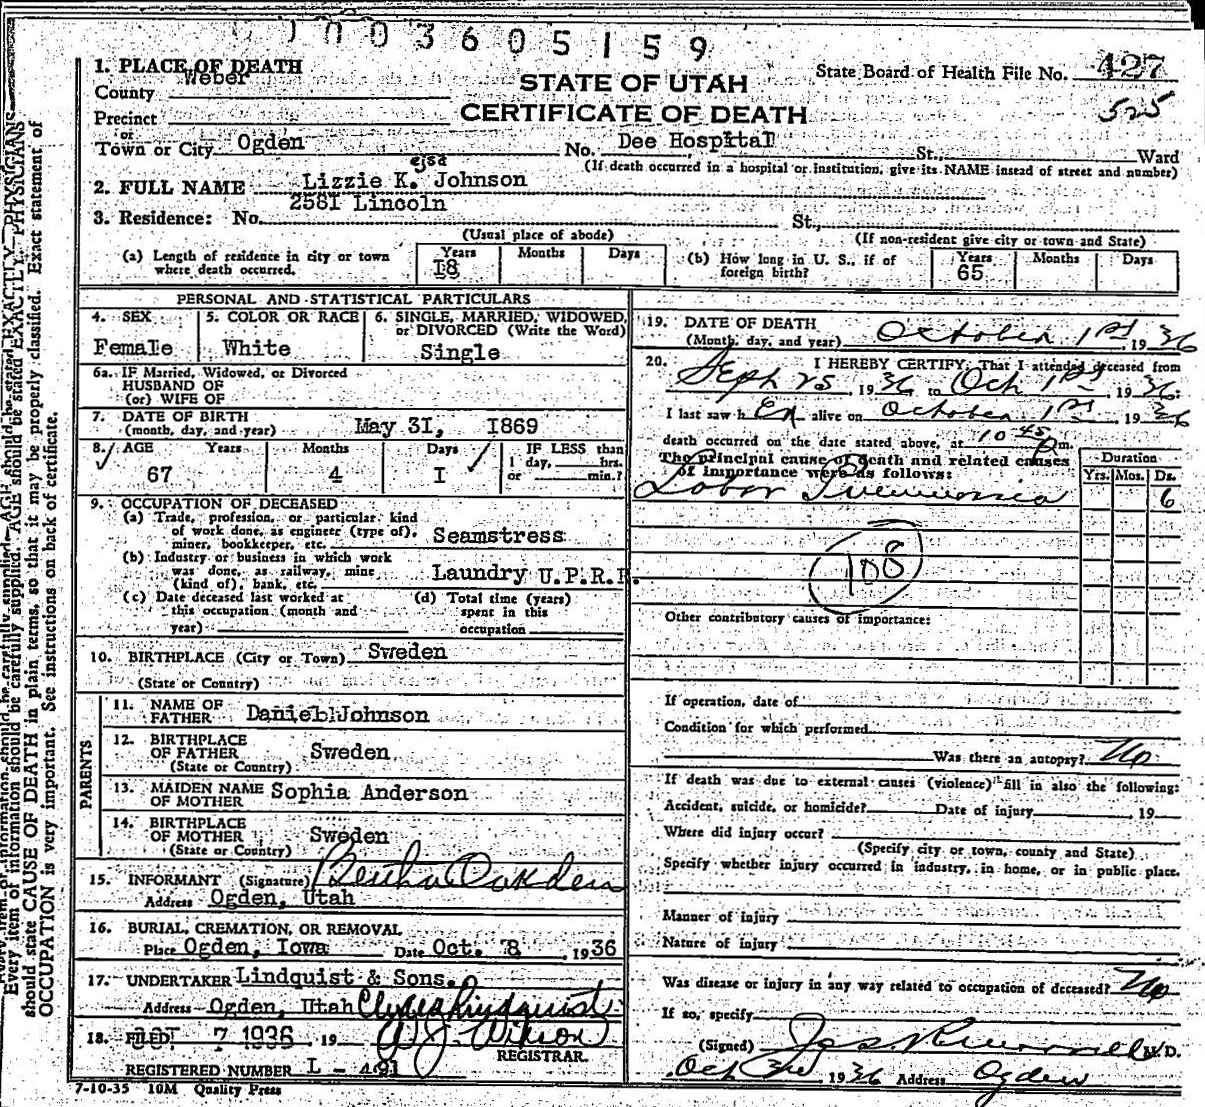 0003605159
1. PLACE OF DEATH
County Weber
STATE OF UTAH
CERTIFICATE OF DEATH
State Board of Health File No. 427
525
Precinct
or
Town or City Ogden No. Dee Hospital St., Ward
(If death occurred in a hospital or institution, give its NAME insead of street and number)
2. FULL NAME Lizzie K. Johnson
3. Residence: No. 2581 Lincoln St.,
(Usual place of abode) (If non-resident give city or town and State)
(a) Length of residence in city or town where death occurred. Years 18 Months Days
(b) How long in U. S., if of foreign birth? Years 65 Months Days
PERSONAL AND STATISTICAL PARTICULARS
4. SEX
Female
5. COLOR OR RACE
White
6. SINGLE, MARRIED, WIDOWED, or DIVORCED (Write the Word)
Single
6a. IF Married, Widowed, or Divorced
HUSBAND OF
(or) WIFE OF
7. DATE OF BIRTH
(month, day, and year) May 31, 1869
8. AGE Years Months Days IF LESS than
67 4 1
1 day, hrs.
or min.?
9. OCCUPATION OF DECEASED
(a) Trade, profession, or particular kind
of work done, as engineer (type of),
miner, bookkeeper, etc. Seamstress
(b) Industry or business in which work
was done, as railway, mine
(kind of), bank, etc. Laundry U.P.R.R.
(c) Date deceased last worked at
this occupation (month and
year)
(d) Total time (years)
spent in this
occupation
10. BIRTHPLACE (City or Town) Sweden
(State or Country)
PARENTS
11. NAME OF
FATHER Daniel Johnson
12. BIRTHPLACE
OF FATHER Sweden
(State or Country)
13. MAIDEN NAME
OF MOTHER Sophia Anderson
14. BIRTHPLACE
OF MOTHER Sweden
(State or Country)
15. INFORMANT (Signature) Bertha Oakden
Address Ogden, Utah
16. BURIAL, CREMATION, OR REMOVAL
Place Ogden, Iowa Date Oct. 8 1936
17. UNDERTAKER Lindquist & Sons.
Address Ogden, Utah Clyde Lindquist
18. FILED OCT 7 1936 19
REGISTRAR.
REGISTERED NUMBER L - 491
7-10-35 10M Quality Press
19. DATE OF DEATH
(Month, day, and year) October 1st, 1936
20. I HEREBY CERTIFY, That I attended deceased from
Sept 25, 1936 to Oct 1st, 1936:
I last saw h er alive on October 1st, 1936
death occurred on the date stated above, at 10 45 p m.
The principal cause of death and related causes
of importance were as follows:
Duration
Yrs. Mos. Ds.
Lobar Pneumonia 6
108
Other contributory causes of importance:
If operation, date of
Condition for which performed
Was there an autopsy? No
If death was due to external causes (violence) fill in also the following:
Accident, suicide, or homicide? Date of injury 19
Where did injury occur?
(Specify city or town, county and State)
Specify whether injury occurred in industry, in home, or in public place.
Manner of injury
Nature of injury
Was disease or injury in any way related to occupation of deceased? No
If so, specify
(Signed) M.D.
Oct 1936 Address Ogden
Every item of information should be carefully supplied. AGE should be stated EXACTLY. PHYSICIANS
should state CAUSE OF DEATH in plain terms, so that it may be properly classified. Exact statement of
OCCUPATION is very important. See instructions on back of certificate.